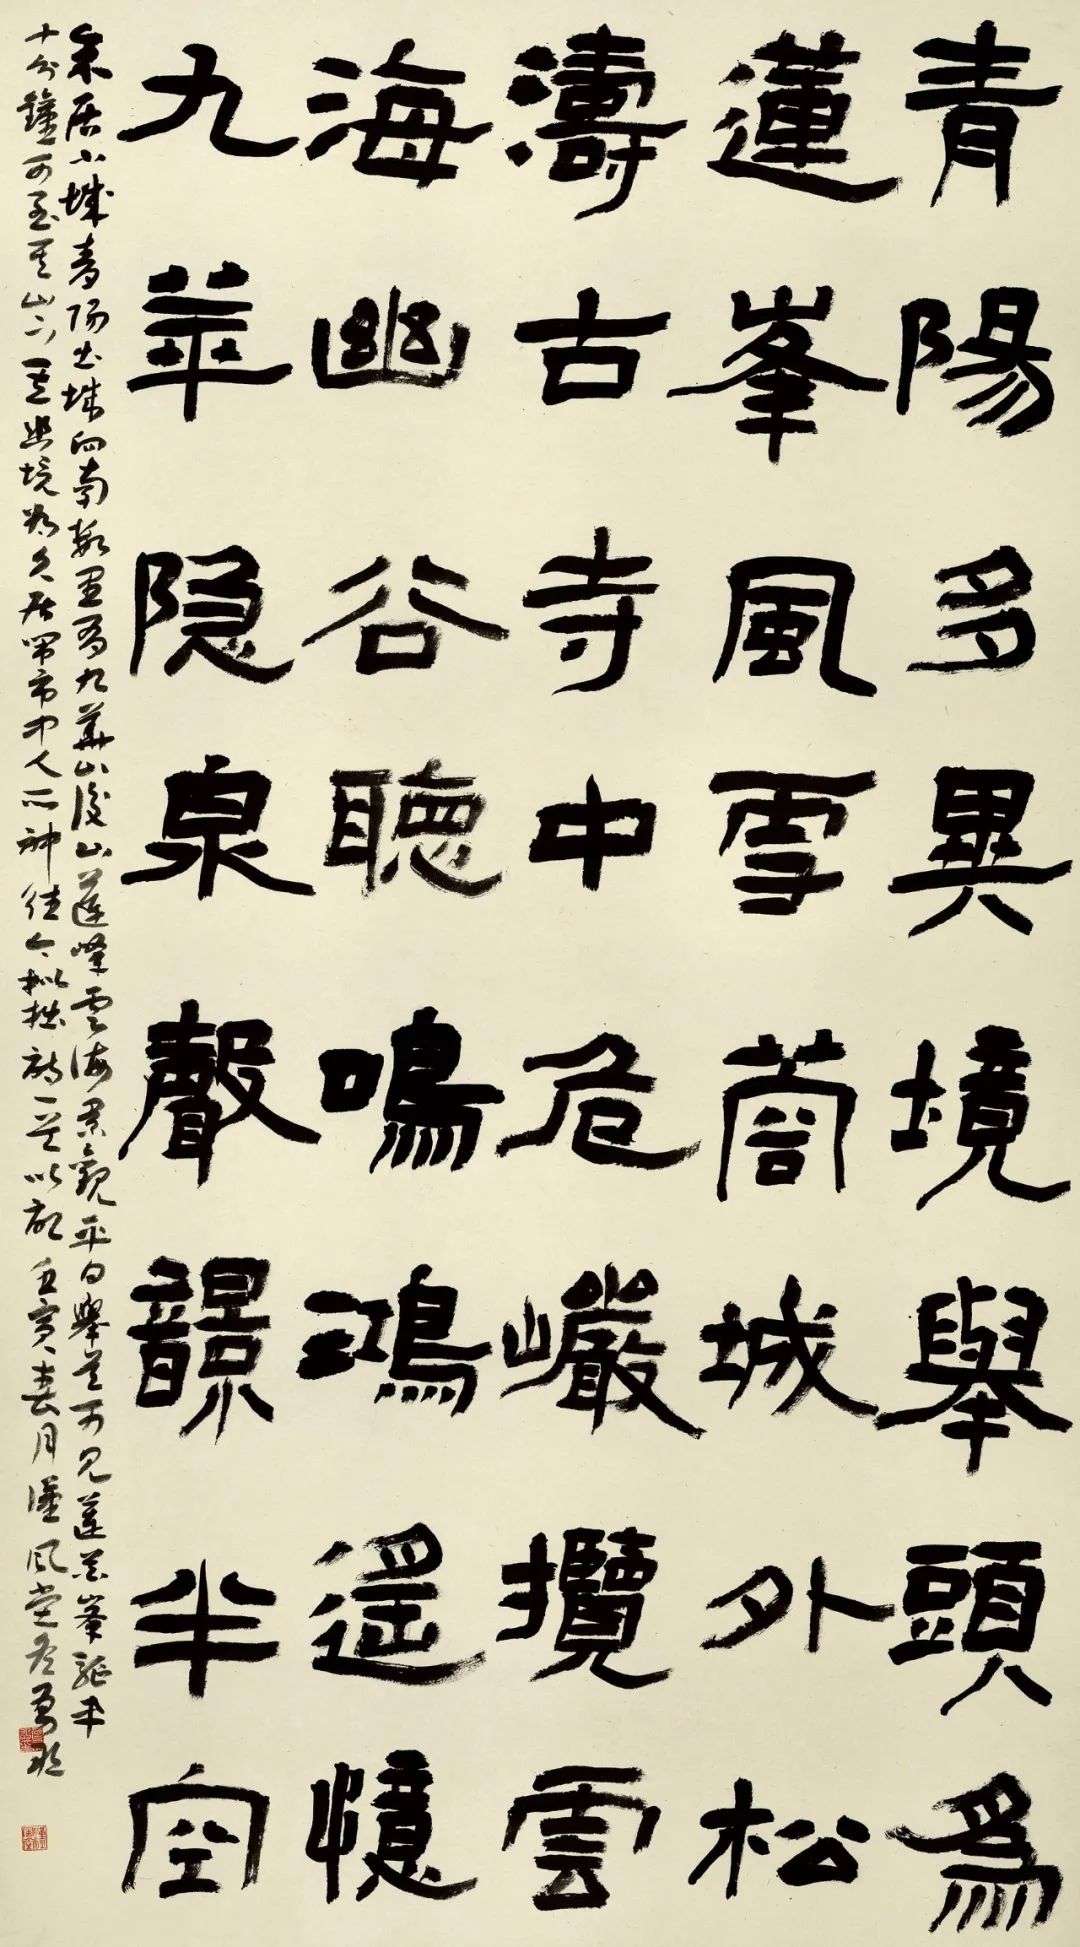 青陽多異境舉頭爲
蓮峯風雪城外松
濤古寺中危巖攬雲
海幽谷聽鳴鴻遙憶
九華隐泉聲韻半空
余居小城青陽出城向南數里為九華山後山蓮峰雲海景觀平日舉首可見蓮花峯驅車
十分鐘可至其山下其幽境為久居鬧市中人所神往今擬拙詩一首以記壬寅春月漢風堂